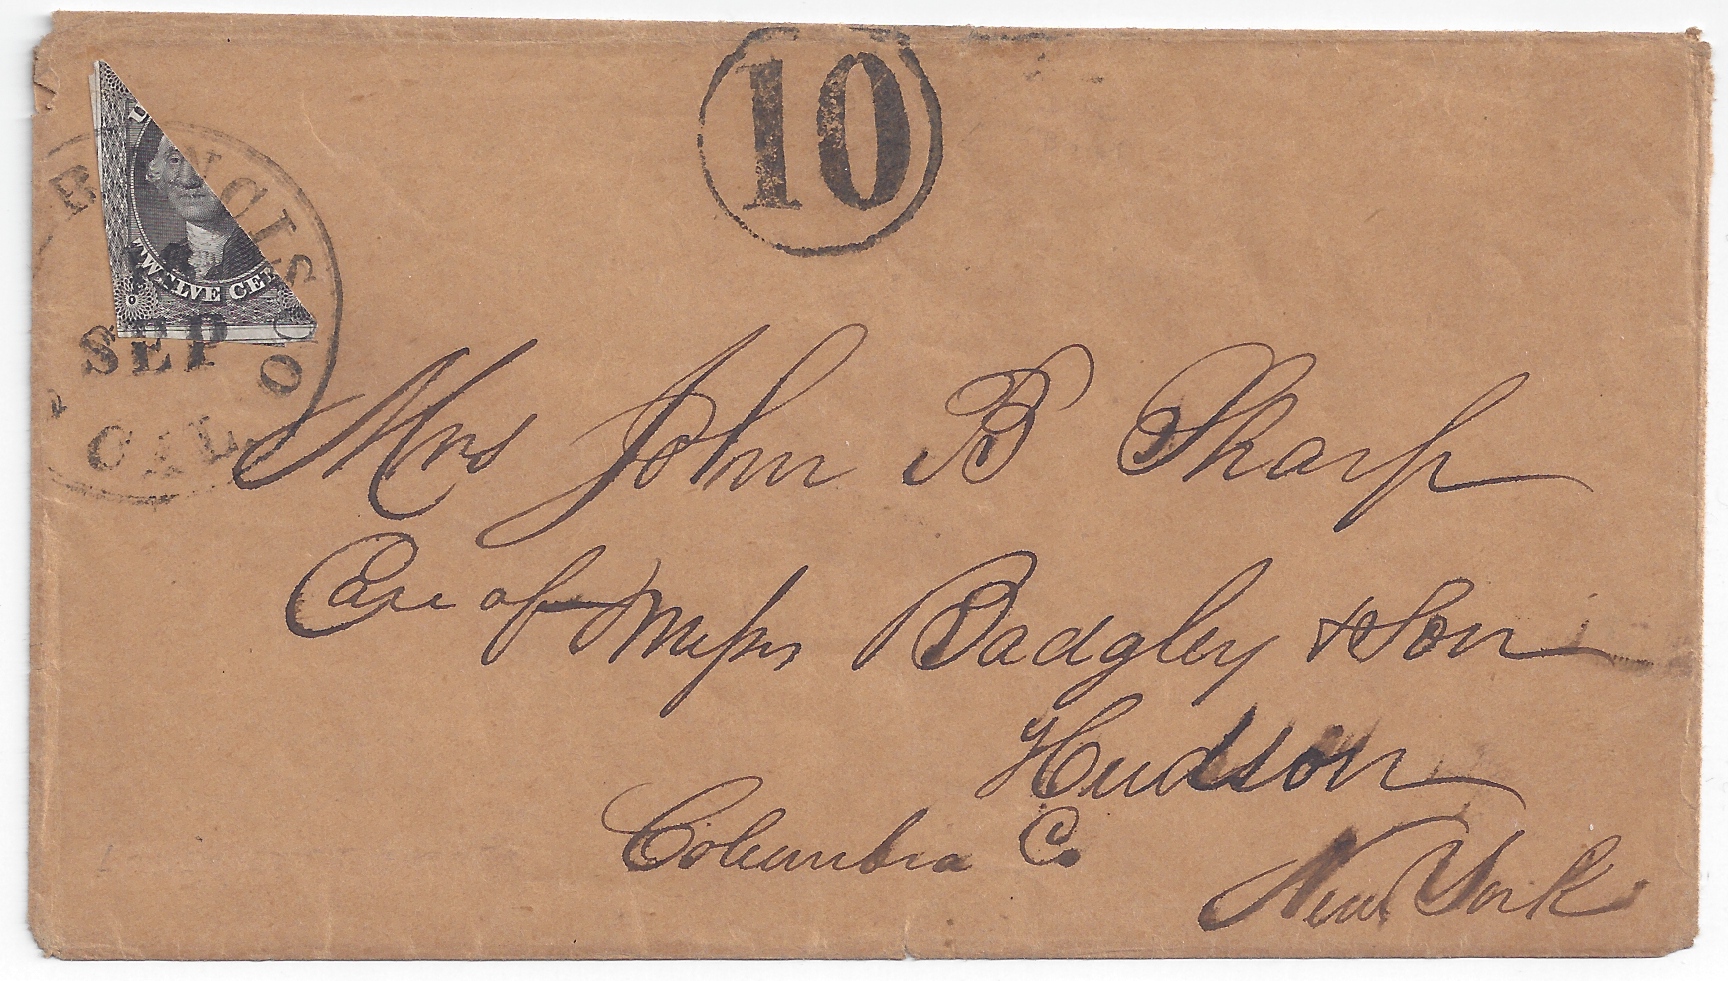 10
RANCISCO
SEP
CAL
TWELVE CE
Mrs John B Sharp
Care of Messrs Badgley & Son
Hudson
Columbia Co.
New York